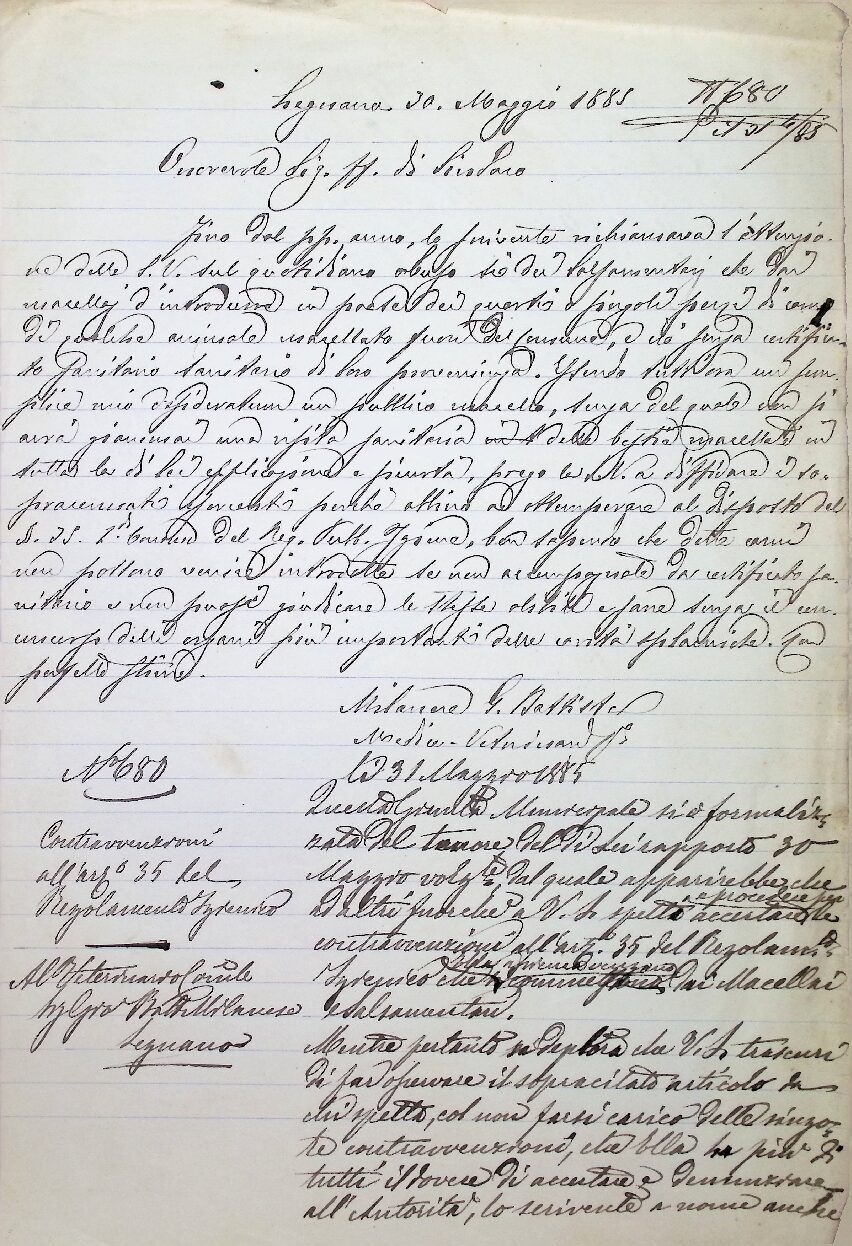 Legnano 30. Maggio 1885
N 680
P. 31 /85
Onorevole Sig. ff. di Sindaco
Fino dal pp. anno, lo scrivente richiamava l'attenzio-
ne della S.V. sul quotidiano abuso sì dei Salsamentarj che dei
macellaj d'introdurre in paese dei quarti o singoli pezzi di carne
di qualche animale macellato fuori del Comune, e ciò senza certifica-
to sanitario sanitario di loro provenienza. Essendo tutt'ora un sem-
plice mio desideratum un pubblico macello, senza del quale non si
avrà giammai una visita sanitaria delle bestie macellate in
tutta la di lei esplicazione e sicurtà, prego la S.V. a diffidare i so-
pracennati esercenti perchè abbino ad ottemperare al disposto del
N. 35. del Reg. Pubb. Igiene, ben sapendo che dette carni
non possono venire introdotte se non accompagnate da certificato sa-
nitario e non puossi giudicare le stesse e sane senza il con-
concorso delli organi più importanti delle cavità splacniche. Con
perfetta stima.
Milanese G. Battista
Medico-Veterinario
N° 680
Li 31 Maggio 1885
Contravvenzioni
all'art° 35 del
Regolamento Igienico
Al Veterinario Comle
Sig Gio Batt Milanese
Legnano
Questa Giunta Municipale si è formaliz-
zata del tenore del di Lei rapporto 30
Maggio volgte, dal quale apparirebbe che
ad altri fuorchè a V. S. spetta accertare le
contravvenzioni all'art° 35 del Regolamto
Igienico che dai Macellai
e salsamentari.
Mentre pertanto si deplora che V. S. trascuri
di far osservare il sopracitato articolo da
chi spetta, col non farsi carico delle singo-
le contravvenzioni, che Ella ha più di
tutti il dovere di accertare e denunziare
all'Autorità, lo scrivente a nome anche